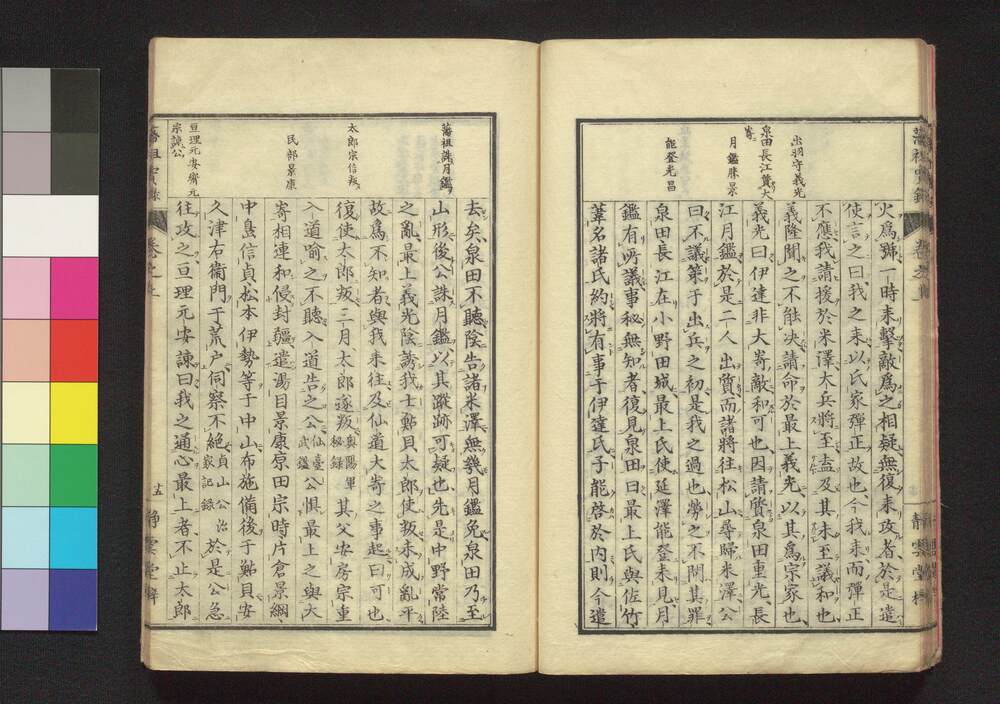 火爲號一時来擊敵爲之相疑無復来攻者於是遣
使言之曰我之来以氏家彈正故也今我来而彈正
不應我請援於米澤大兵將至盍及其未至議和也
義隆聞之不能决請命於最上義光以其爲宗家也
義光曰伊達非大寄敵和可也因請質泉田重光長
江月鑑於是二人出質而諸將往松山尋歸米澤公
曰不議策于出兵之初是我之過也勞之不問其罪
泉田長江在小野田城最上氏使延澤能登来見月
鑑有所議事秘無知者復見泉田曰最上氏與佐竹
葦名諸氏約將有事于伊達氏子能啓於内則今遣
出羽守義光
泉田長江質大
寄
月鑑勝景
能登光昌
藩祖實錄
卷之
静雲堂梓
去矣泉田不聽陰告諸米澤無幾月鑑免泉田乃至
山形後公誅月鑑以其蹤跡可疑也先是中野常陸
之亂最上義光陰誘我士鮎貝太郎使叛未成亂平
故爲不知者與我来往及仙道大寄之事起曰可也
復使太郎叛三月太郎遂叛奥陽軍秘録其父安房宗重
入道喻之不聽入道告之公仙臺武鑑公惧最上之與大
寄相連和侵封疆遣湯目景康原田宗時片倉景綱
中島信貞松本伊勢等于中山布施備後于鮎貝安
久津右衞門于荒戸伺察不絕貞山公治家記録於是公急
往攻之亘理元安諫曰我之通心最上者不止太郎
藩祖誅月鑑
太郎宗信叛
民部景康
亘理元安齋元
宗諫公
藩祖實錄
卷之上
十五
静雲堂梓